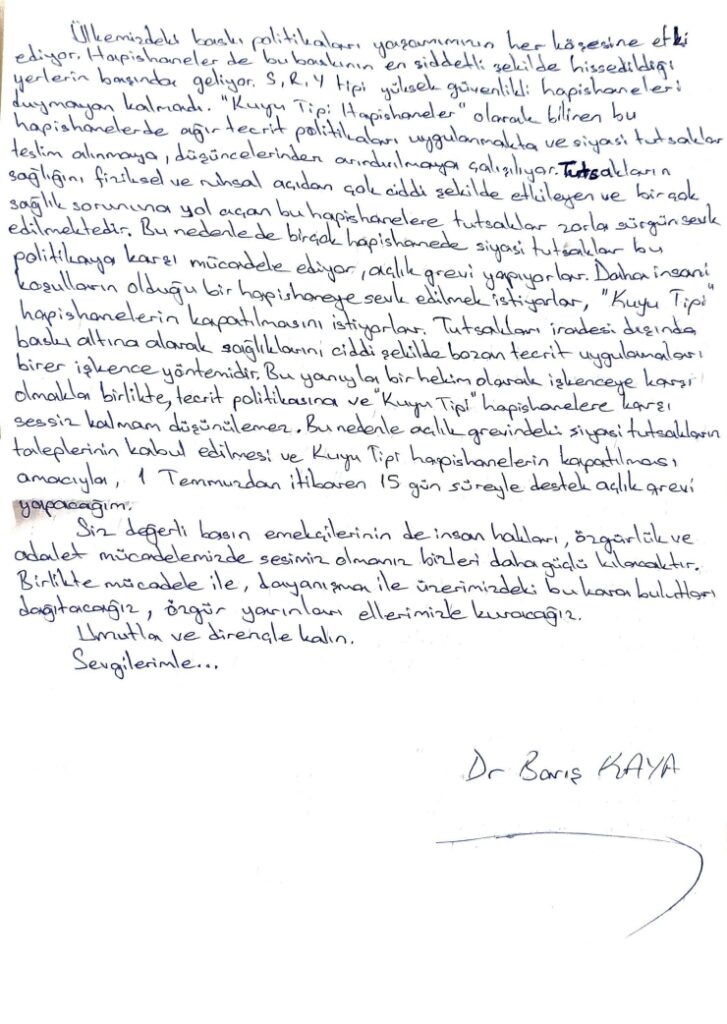 Ülkemizdeki baskı politikaları yaşamımının her köşesine etki
ediyor. Hapishaneler de bu baskının en şiddetli şekilde hissedildiği
yerlerin başında geliyor. S, R, Y tipi yüksek güvenlikli hapishaneleri
duymayan kalmadı. "Kuyu Tipi Hapishaneler" olarak bilinen bu
hapishanelerde ağır tecrit politikaları uygulanmakta ve siyasi tutsaklar
teslim alınmaya, düşüncelerinden arındırılmaya çalışılıyor. Tutsakların
sağlığını fiziksel ve ruhsal açıdan çok ciddi şekilde etkileyen ve birçok
sağlık sorununa yol açan bu hapishanelere tutsaklar zorla sürgün sevk
edilmektedir. Bu nedenle de birçok hapishanede siyasi tutsaklar bu
politikaya karşı mücadele ediyor, açlık grevi yapıyorlar. Daha insani
koşulların olduğu bir hapishaneye sevk edilmek istiyorlar, "Kuyu Tipi"
hapishanelerin kapatılmasını istiyorlar. Tutsakları iradesi dışında
baskı altına alarak sağlıklarını ciddi şekilde bozan tecrit uygulamaları
birer işkence yöntemidir. Bu yanıyla bir hekim olarak işkenceye karşı
olmakla birlikte, tecrit politikasına ve "Kuyu Tipi" hapishanelere karşı
sessiz kalmam düşünülemez. Bu nedenle açlık grevindeki siyasi tutsakların
taleplerinin kabul edilmesi ve Kuyu Tipi hapishanelerin kapatılması
amacıyla, 1 Temmuzdan itibaren 15 gün süreyle destek açlık grevi
yapacağım.
Siz değerli basın emekçilerinin de insan hakları, özgürlük ve
adalet mücadelemizde sesimiz olmanız bizleri daha güçlü kılacaktır.
Birlikte mücadele ile, dayanışma ile üzerimizdeki bu kara bulutları
dağıtacağız, özgür yarınları ellerimizle kuracağız.
Umutla ve dirençle kalın.
Sevgilerimle...
Dr Barış KAYA